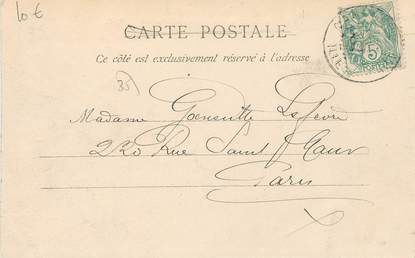 10 €
CARTE POSTALE
Ce côté est exclusivement réservé à l'adresse
35
Madame Lefèvre
220 Rue Saint Maur
Paris
5